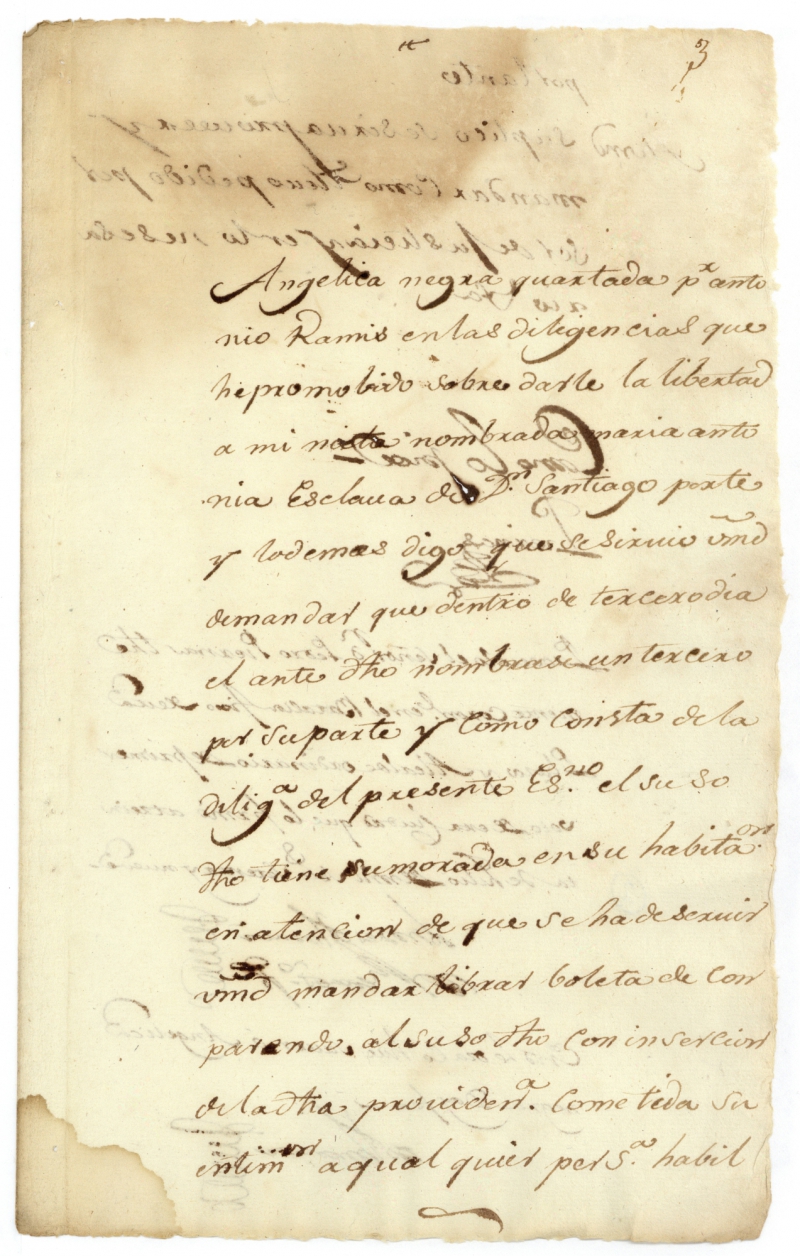 3
Angelica negra quartada pr. anto
nio Ramis en las diligencias que
he promobido sobre darle la libertad
a mi nieta nombrada maria anto
nia Esclava de Dn. Santiago porte
y lo demas digo que se sirvio vmd
demandar que dentro de tercero dia
el ante dho nombrase un tercero
por su parte y como consta de la
dilig.a del presente Es.no el su so
dho tiene su morada en su habita.on
en atencion de que se ha de servir
vmd mandar librar boleta de con
parendo, al suso dho con insercion
de la dha providen.a cometida su
intim.on a qual quier pers.a habil